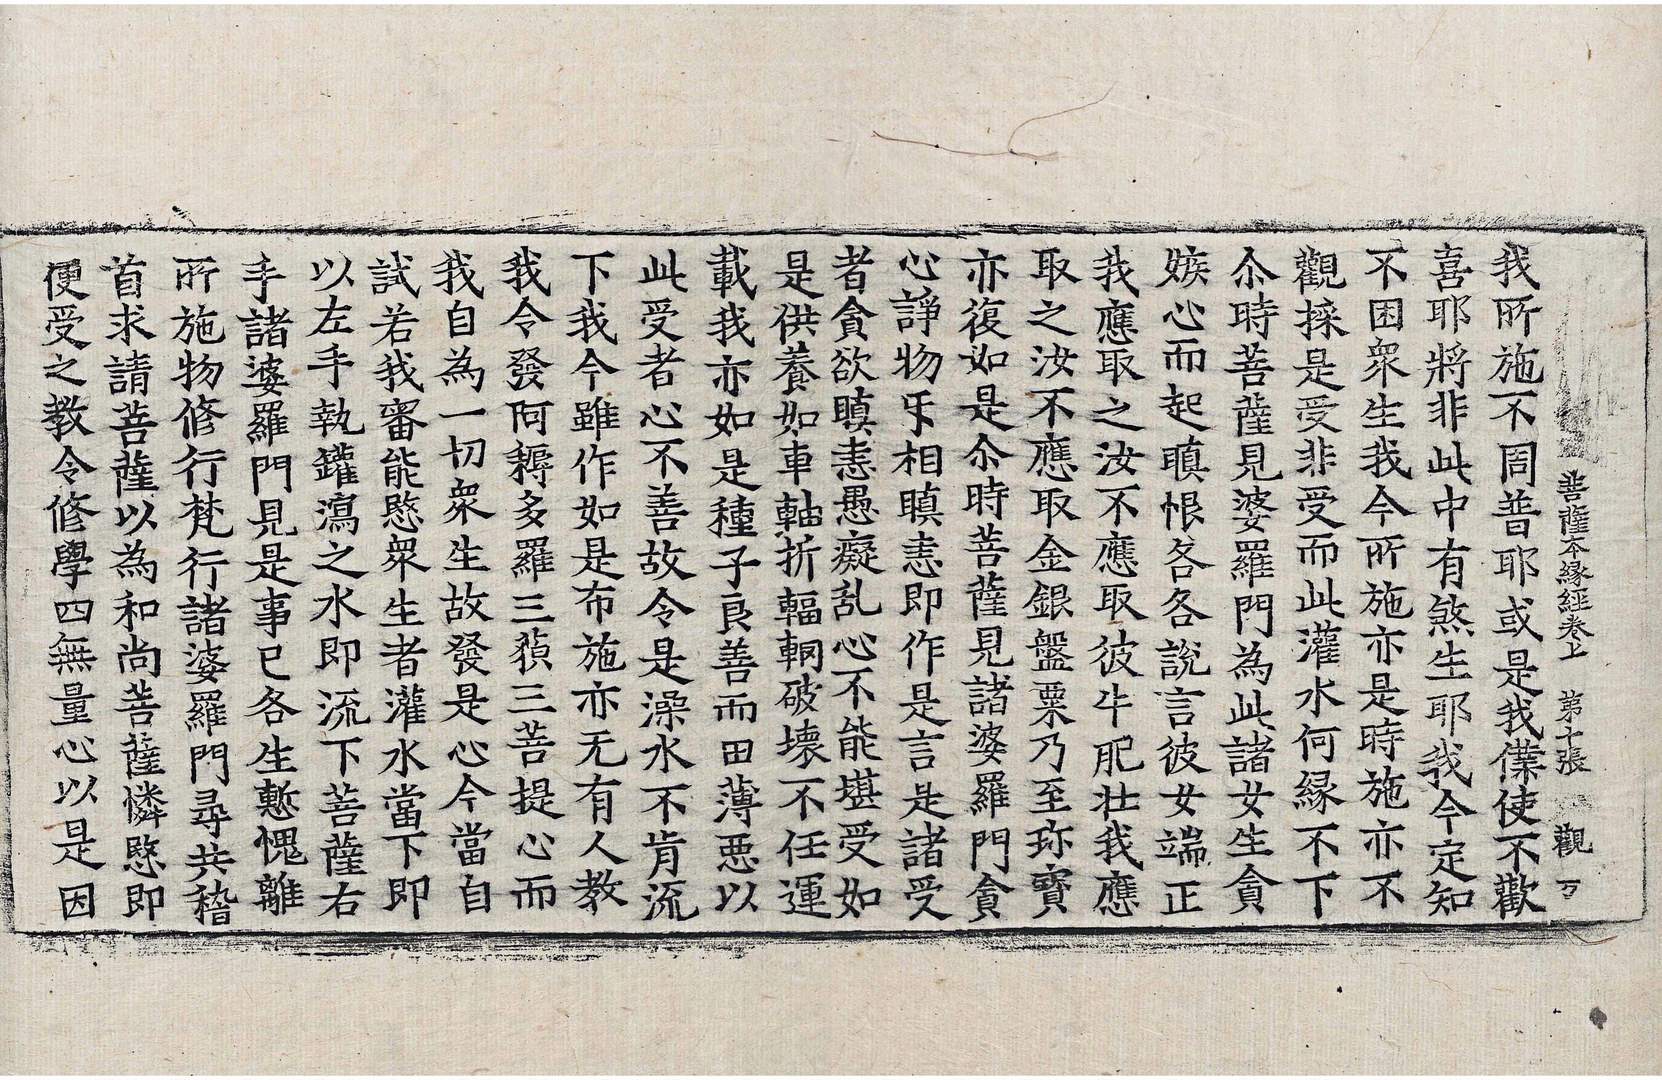 菩薩本緣經卷上 第十張 觀 万
我所施不周普耶或是我僕使不歡
喜耶將非此中有煞生耶我今定知
不困衆生我今所施亦是時施亦不
觀採是受非受而此灌水何緣不下
尒時菩薩見婆羅門為此諸女生貪
嫉心而起瞋恨各各說言彼女端正
我應取之汝不應取彼牛肥壯我應
取之汝不應取金銀盤粟乃至珎寶
亦復如是尒時菩薩見諸婆羅門貪
心諍物𭃡相瞋恚即作是言是諸受
者貪欲瞋恚愚癡乱心不能堪受如
是供養如車軸折輻輞破壞不任運
載我亦如是種子良善而田薄惡以
此受者心不善故令是澡水不肯流
下我今雖作如是布施亦无有人教
我令發阿耨多羅三藐三菩提心而
我自為一切衆生故發是心今當自
試若我審能愍衆生者灌水當下即
以左手執鑵瀉之水即流下菩薩右
手諸婆羅門見是事已各生慙愧離
所施物修行梵行諸婆羅門尋共稽
首求請菩薩以為和尚菩薩憐愍即
便受之教令修學四無量心以是因